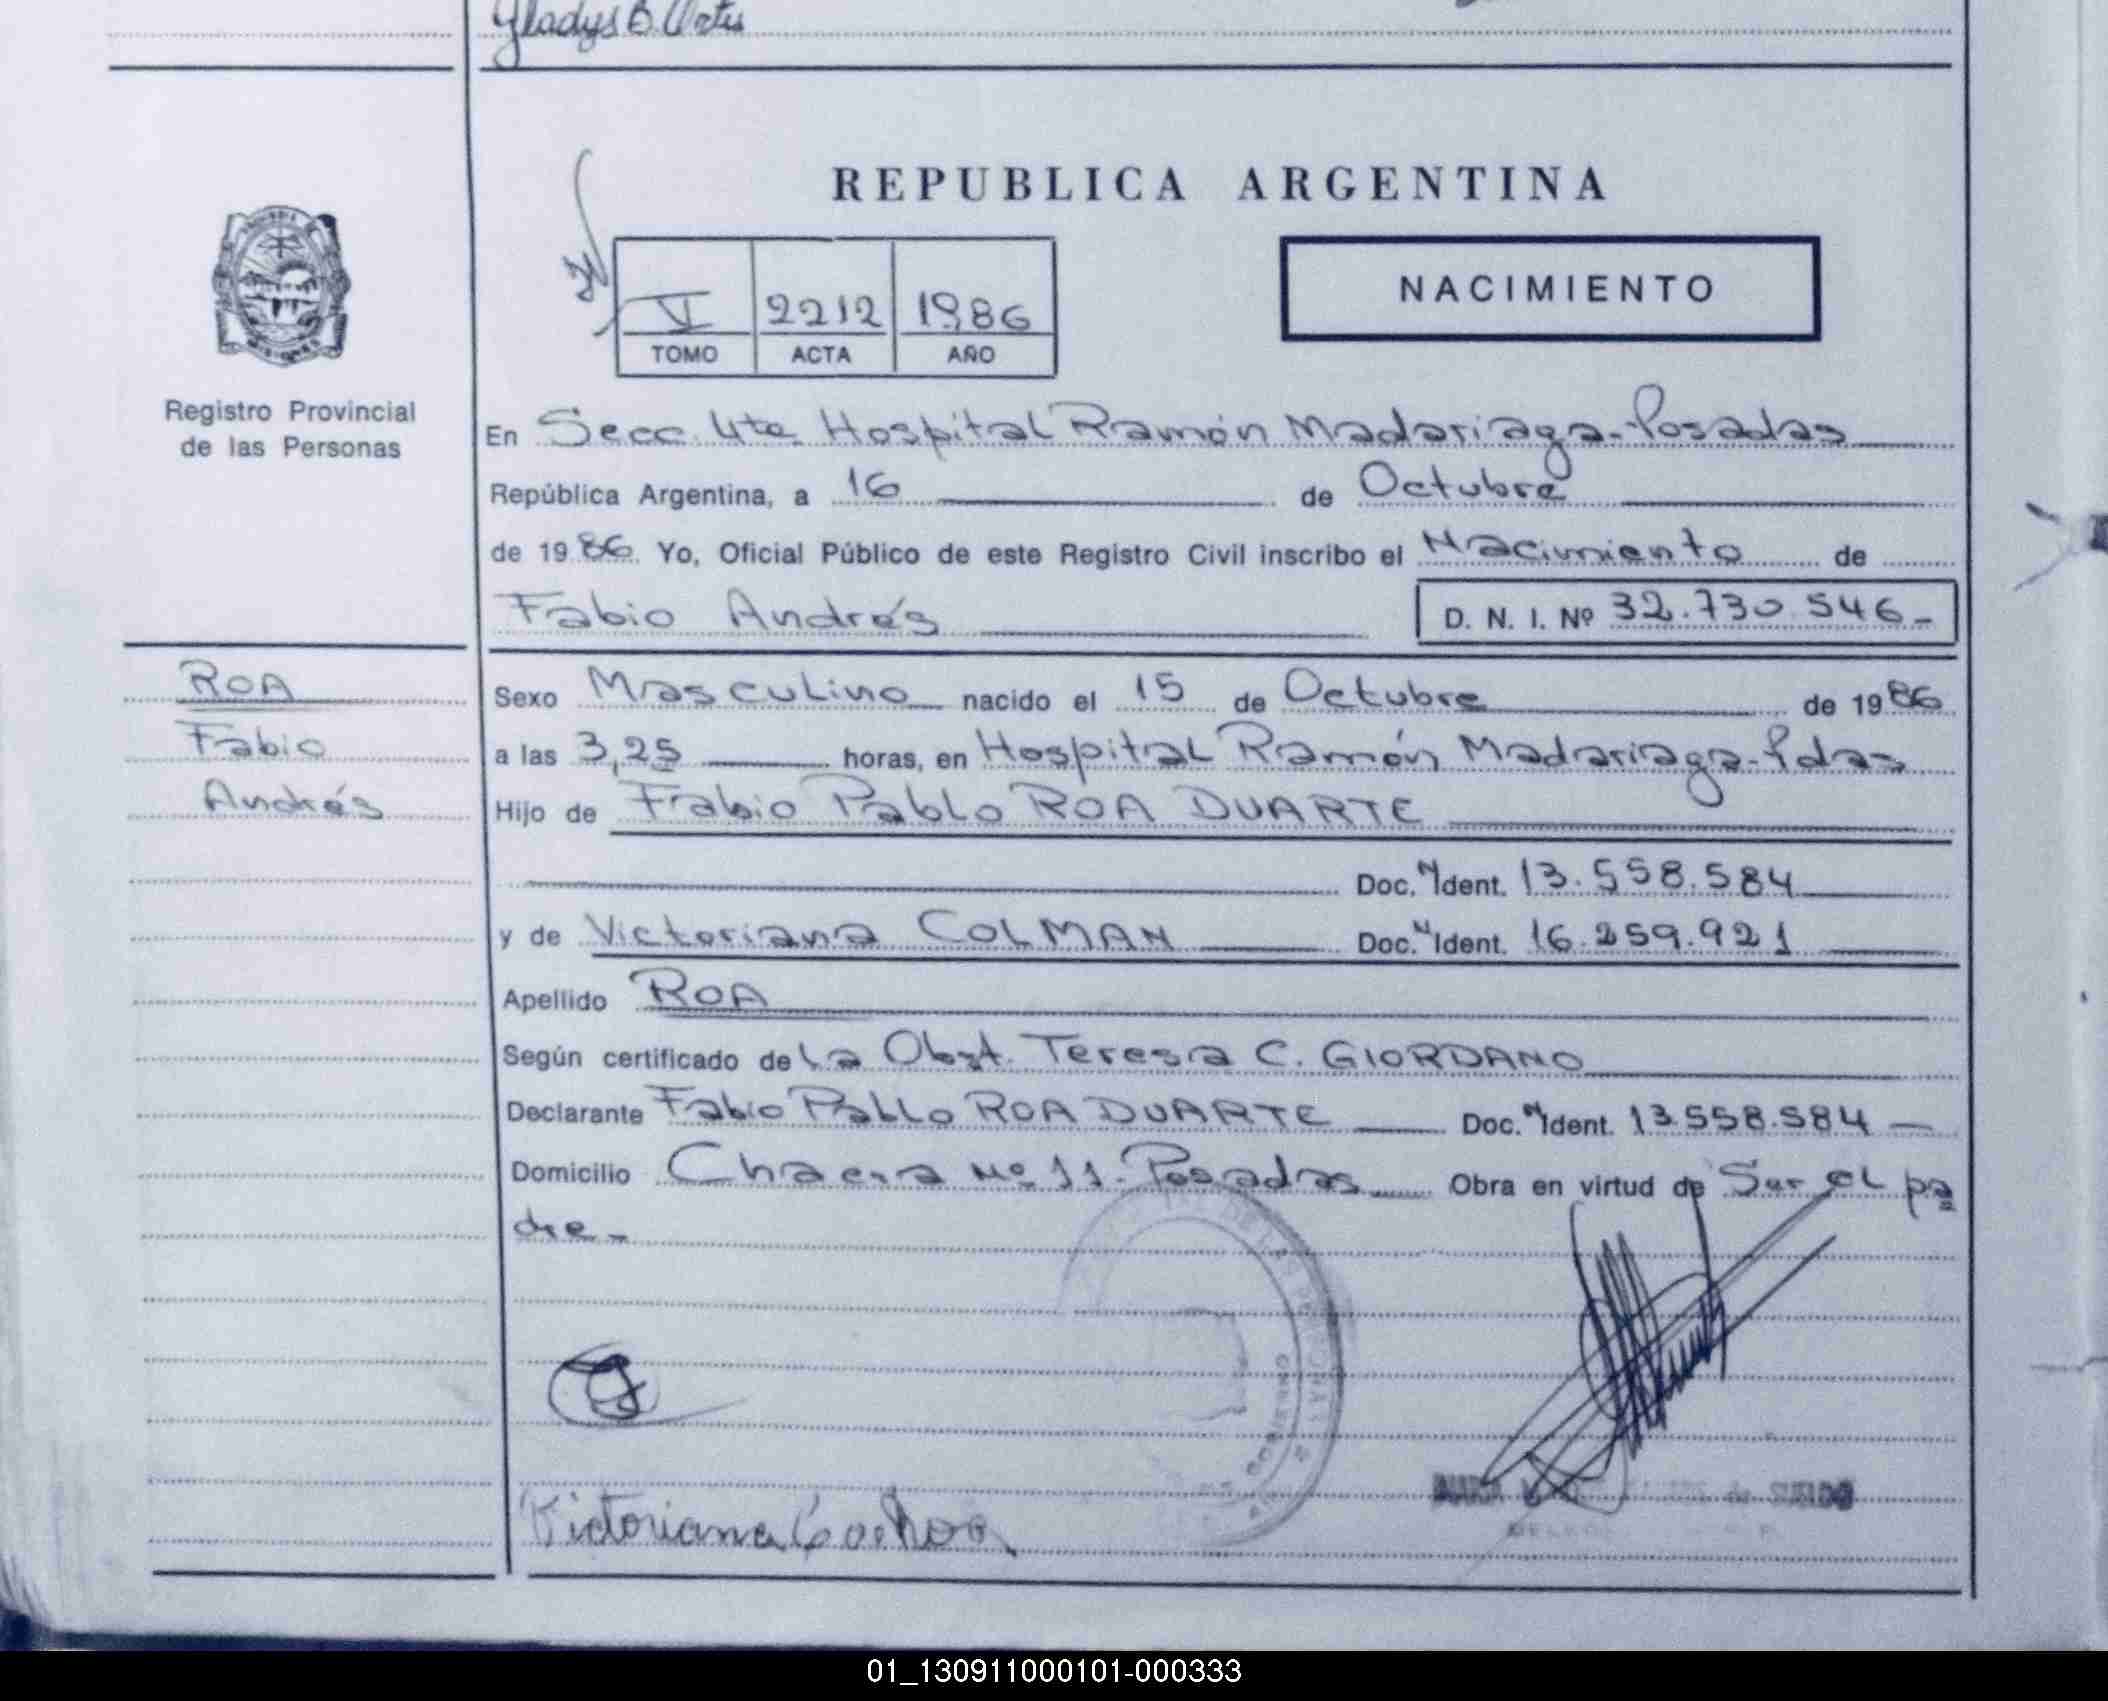 Gladys B. Ortis
REPUBLICA ARGENTINA
V 2212 1986
TOMO ACTA AÑO
NACIMIENTO
Registro Provincial
de las Personas
En Secc. 4ta. Hospital Ramón Madariaga-Posadas
República Argentina, a 16 de Octubre
de 1986. Yo, Oficial Público de este Registro Civil inscribo el Nacimiento de
Fabio Andrés D. N. I. Nº 32.730.546-
ROA
Fabio
Andrés
Sexo Masculino nacido el 15 de Octubre de 1986
a las 3,25 horas, en Hospital Ramón Madariaga-Pdas
Hijo de Fabio Pablo ROA DUARTE
Doc. Ident. 13.558.584
y de Victoriana COLMAN Doc. Ident. 16.259.921
Apellido ROA
Según certificado de la Obst. Teresa C. GIORDANO
Declarante Fabio Pablo ROA DUARTE Doc. Ident. 13.558.584
Domicilio Chacra Nº 11. Posadas Obra en virtud de Ser el pa
dre.-
Victoriana
01_130911000101-000333